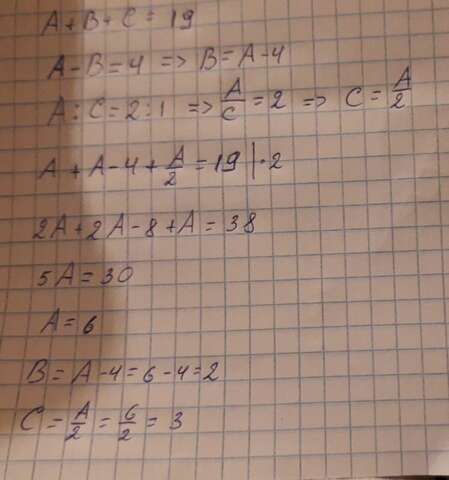 A + B + C = 19
A - B = 4 => B = A - 4
A : C = 2 : 1 => A/C = 2 => C = A/2
A + A - 4 + A/2 = 19 | · 2
2A + 2A - 8 + A = 38
5A = 30
A = 6
B = A - 4 = 6 - 4 = 2
C = A/2 = 6/2 = 3